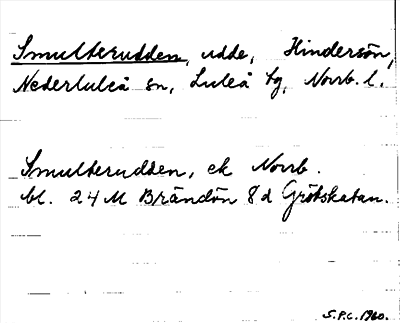 Smulterudden, udde, Hindersön,
Nederluleå sn, Luleå tg, Norrb. l.
Smulterudden, ek Norrb.
bl. 24 M Brändön 8 d Gråtskatan.
S.P.C. 1960.